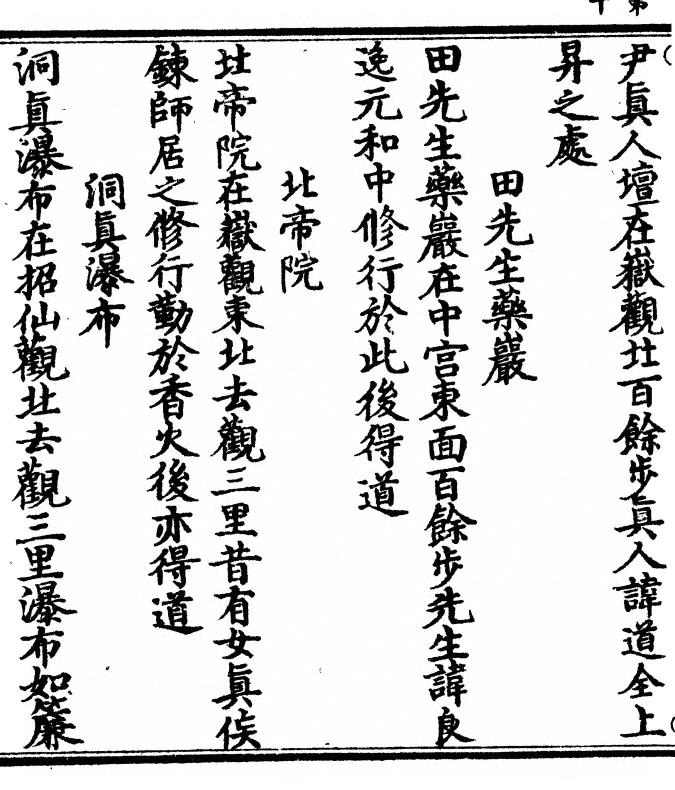 尹眞人壇在嶽觀北百餘步眞人諱道全上
昇之處
田先生藥巖
田先生藥巖在中宮東面百餘步先生諱良
逸元和中修行於此後得道
北帝院
北帝院在嶽觀東北去觀三里昔有女眞侯
鍊師居之修行勤於香火後亦得道
洞眞瀑布
洞眞瀑布在招仙觀北去觀三里瀑布如簾